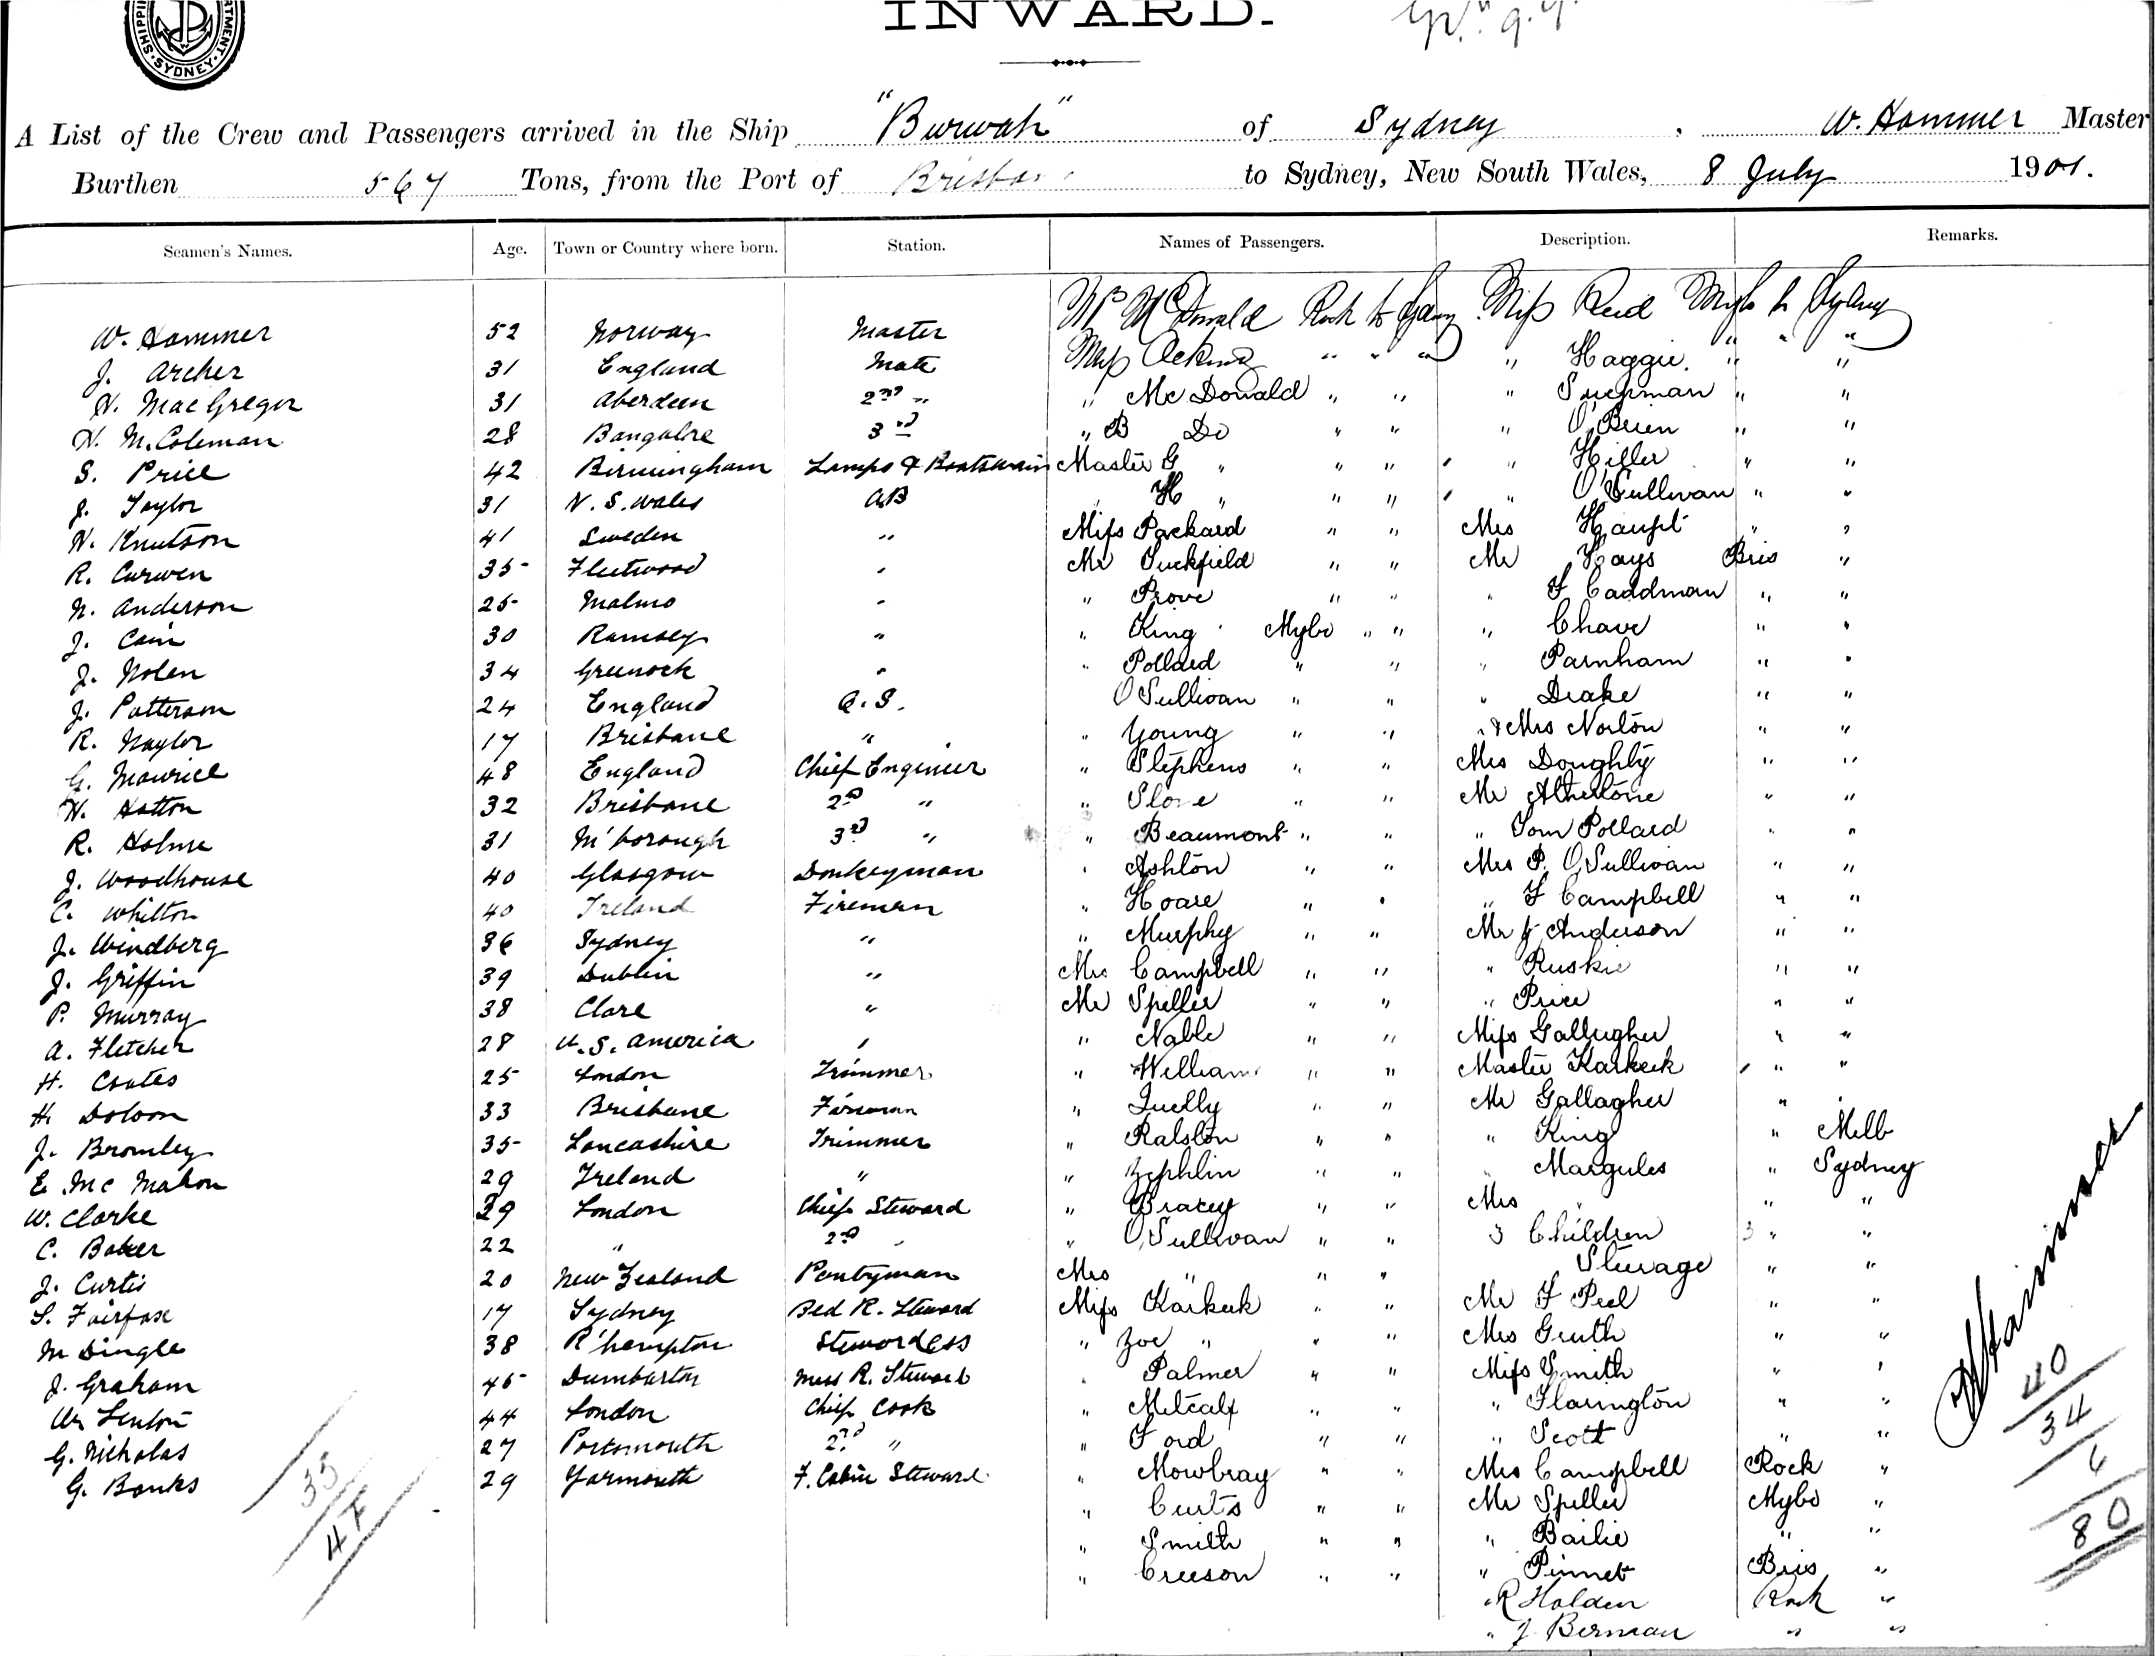 SHIPPI RTMENT
SYDNEY
INWARD.
A List of the Crew and Passengers arrived in the Ship "Burwah" of Sydney, W. Hammer Master
Burthen 567 Tons, from the Port of Brisba to Sydney, New South Wales, 8 July 1901.
Seamen's Names. Age. Town or Country where born. Station. Names of Passengers. Description. Remarks.
Mr McDonald Rock to Sydney Miss Reid Mybo to Sydney
W. Hammer 52 Norway Master
J. Archer 31 England Mate Miss " " " " Haggie " " "
N. MacGregor 31 Aberdeen 2nd " " McDonald " " " " "
H. M. Coleman 28 Bangalore 3rd " B Do " " " O'Brien " "
S. Price 42 Birmingham Lamps & Boatswain Master G " " " " Hiller " "
J. Taylor 31 N. S. Wales AB " H " " " " O'Sullivan " "
N. Knutson 41 Sweden " Miss Packard " " Mrs Haupt " "
R. Curwen 35 Fleetwood " Mr Tuckfield " " Mr Hays Bris "
N. Anderson 25 Malmo " " Prove " " " F Caddman " "
J. Cain 30 Ramsey " " King Mybo " " " Chave " "
J. Nolen 34 Greenock " " Pollard " " " Parnham " "
J. Patterson 24 England O.S. O'Sullivan " " " Drake " "
R. Naylor 17 Brisbane " " Young " " " & Mrs Norton " "
G. Maurice 48 England Chief Engineer " Stephens " " Mrs Doughty " "
H. Hatton 32 Brisbane 2nd " " " " Mr Athertone " "
R. Holme 31 M'borough 3rd " " Beaumont " " " Tom Pollard " "
J. Woodhouse 40 Glasgow Donkeyman " Ashton " " Mrs P. O'Sullivan " "
C. Whitton 40 Ireland Fireman " Hoare " " " F Campbell " "
J. Windberg 36 Sydney " " Murphy " " Mr J. Anderson " "
J. Griffin 39 Dublin " Mrs Campbell " " " Ruskie " "
P. Murray 38 Clare " Mr Speller " " " Price " "
A. Fletcher 28 U.S. America " " Nable " " Miss Gallugher " "
H. Coates 25 London Trimmer " William " " Master Karkeek " "
H. Dobson 33 Brisbane Fireman " Quelly " " Mr Gallagher " "
J. Bromley 35 Lancashire Trimmer " Ralston " " " King " Melb
E. McMahon 29 Ireland " " Zephlin " " " Margules " Sydney
W. Clarke 29 London Chief Steward " Bracey " " Mrs " " "
C. Baker 22 " 2nd " " O'Sullivan " " 3 Children 3 " "
J. Curtis 20 New Zealand Pantryman Mrs " " " Steerage " "
S. Fairfax 17 Sydney Bed R. Steward Miss Karkeek " " Mr F Peel " "
M Dingle 38 R'hampton Stewardess " Zoe " " " Mrs Gruth " "
J. Graham 45 Dumbarton Mess R. Steward " Palmer " " Miss Smith " "
W. Lenton 44 London Chief Cook " Metcalf " " " Flarington " "
G. Nicholas 27 Portsmouth 2nd " " Ford " " " Scott " "
G. Banks 29 Yarmouth F. Cabin Steward " Mowbray " " Mrs Campbell Rock "
" Curts " " Mr Speller Mybo "
" Smith " " " Bailie " "
" Creeson " " " Pinnet Bris "
" R Holden Rock "
" J Berman " "
35
47
40
34
6
80